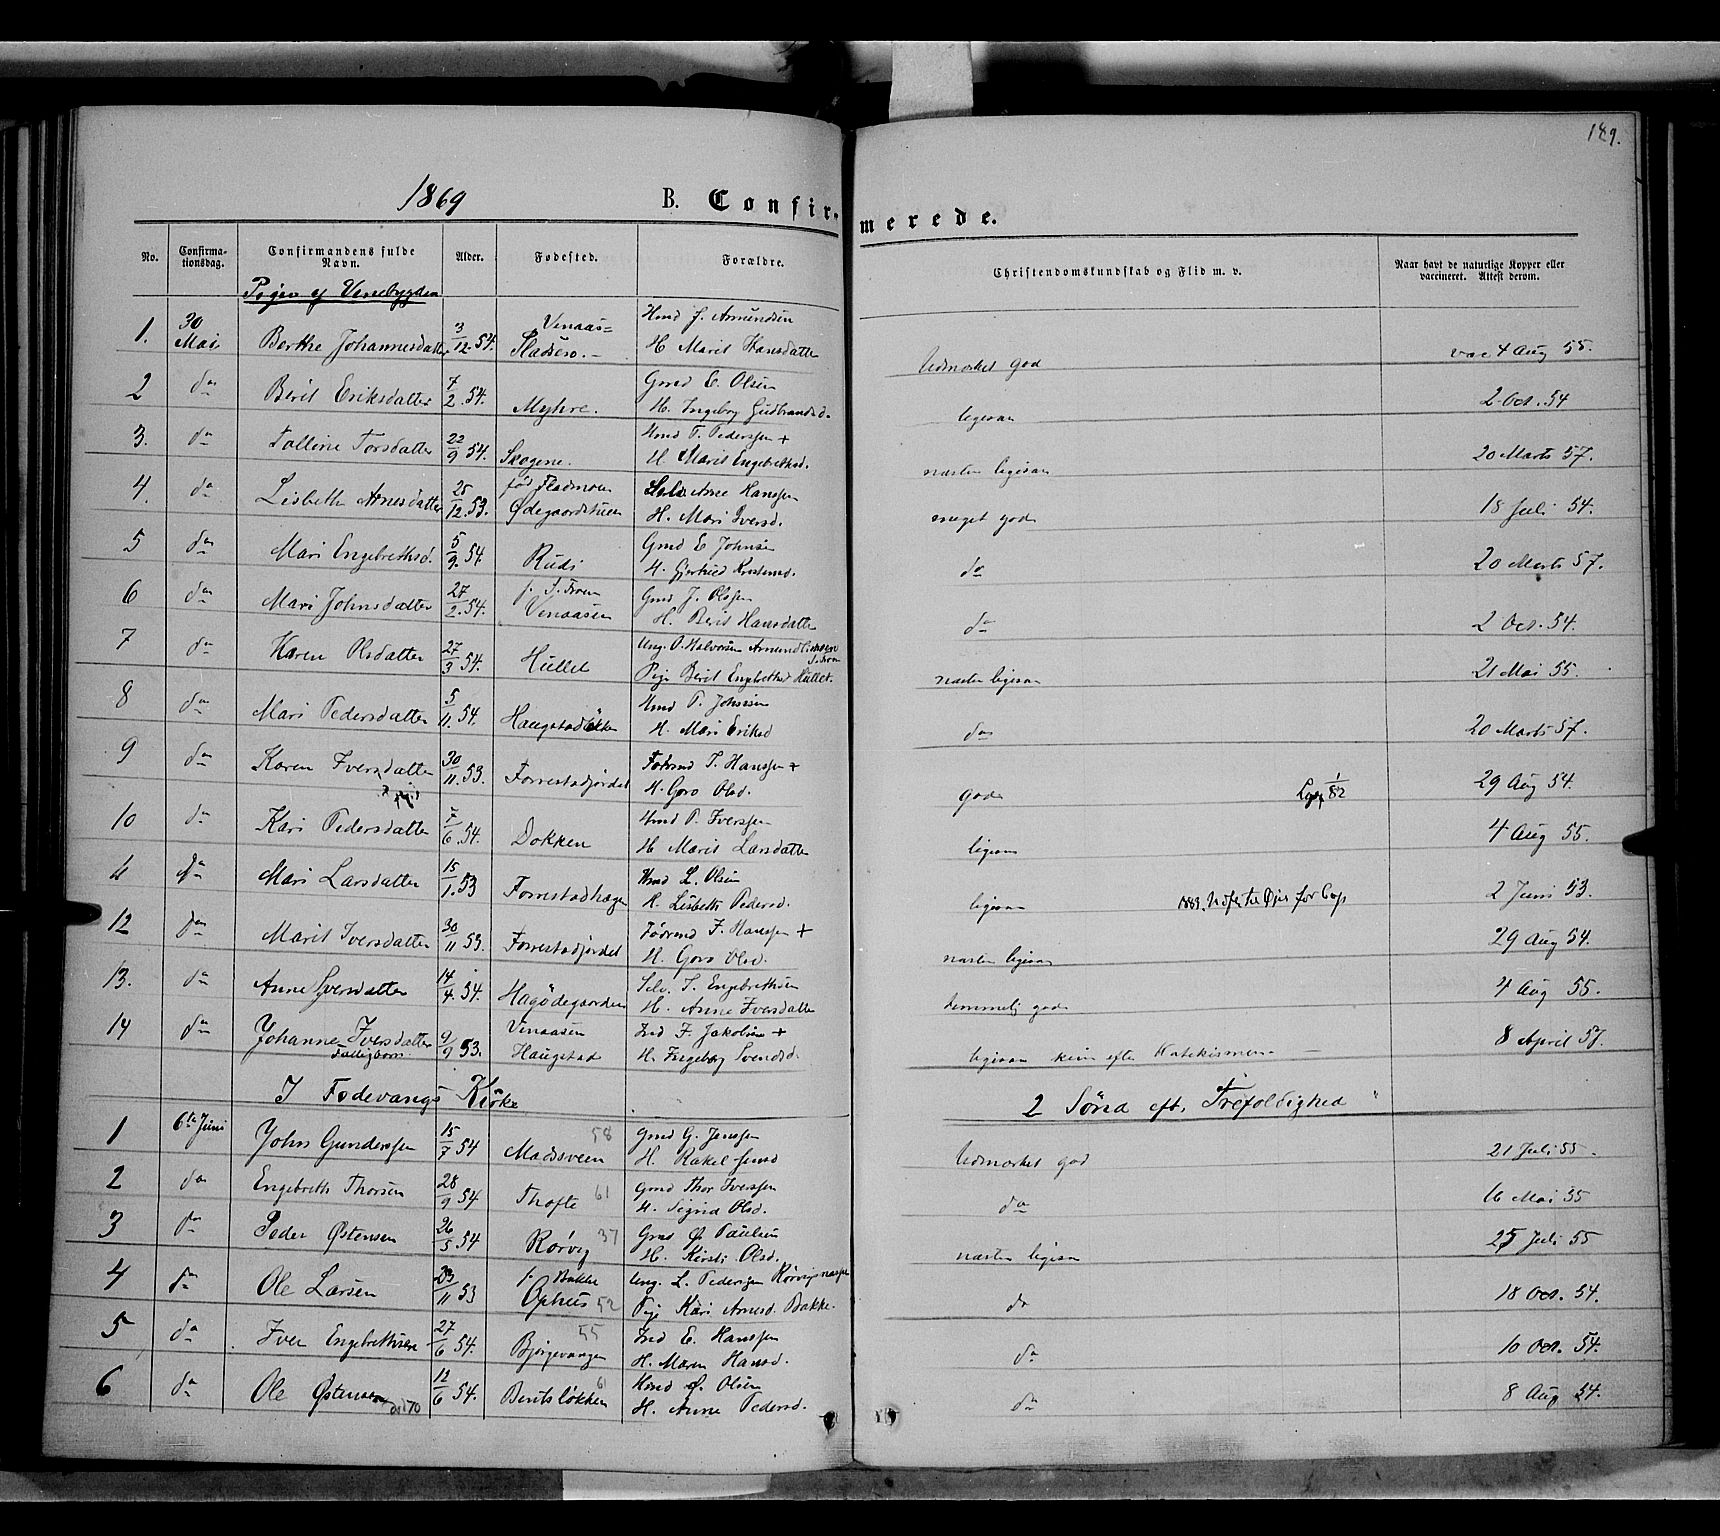 189.
1869 B. Confirmerede.
No. Confirmationsdag. Confirmandens fulde Navn. Alder. Fødested. Forældre. Christendomskundskab og Flid m. v. Naar havt de naturlige Kopper eller vaccineret. Attest derom.
Piger af Venebygden
1. 30 Mai Berthe Johannesdatter 3/12. 54. Venaas= Sladsero.- Hmd J. Amundsen H. Marit Hansdatter Udmærket god vac 4 Aug 55.
2 do Berit Eriksdatter 7/2. 54. Myhre. Gmd E. Olsen H. Ingebrg Gudbrandsd. ligesaa 2 Oct. 54
3. do Talline Torsdatter 22/9 54. Skogene. Hmd T. Pederssen + H. Marit Engebrethsd. næsten ligesaa 20 Marts 57.
4. do Lisbeth Arnesdatter 25/12. 53. fød Fladmoen Ødegaardstuen Selv. Arne Hanssen H. Mari Iversd. meget god 18 Juli 54.
5 do Mari Engebrethsd. 5/9. 54 Rudi Gmd E Johnsen H. Gjertrud Kristensd. do 20 Marts 57.
6 do Mari Johnsdatter 27/2. 54. f. S. Fron Venaasen Gmd J. Olssen H. Berit Hansdatter do 2 Oct. 54.
7 do Karen Olsdatter 27/3 54. Hullet Ung. O. Halvorsen Pige Berit Engebrethsd Hullet. næsten ligesaa 21 Mai 55.
8 do Mari Pedersdatter 5/11. 54. Haugstadløkken Hmd P. Johnsen H. Mari Eriksd do 20 Marts 57.
9 do Karen Iversdatter 30/11. 53. Forrestadjordet Hanssen + H. Goro Olsd. god 1/82 29 Aug 54.
10 do Kari Pedersdatter 7/6. 54. Dokken Hmd P. Iverssen H. Marit Larsdatter ligesaa 4 Aug 55.
11 do Mari Larsdatter 15/1. 53 Forrestadhagen Hmd L. Olsen H. Lisbeth Pedersd. ligesaa 1883. for 2 Juni 53.
12 do Marit Iversdatter 30/11 53. Forrestadjordet Føderaad I. Hanssen + H. Goro Olsd. næsten ligesaa 29 Aug 54.
13. do Anne Iversdatter 14/4. 54. Hagødegaarden Selv. I. Engebrethsen H. Anne Iversdatter temmelig god 4 Aug 55.
14 do Johanne Iversdatter 9/9 53. Venaasen Haugstad Ind I. Jakobsen + H. Ingeborg Svendsd. ligesaa kun efter Katekismen - 8 April 57.
I Fodevangs - Kirke 2 Sønd eft. Trefoldighed
1 6te Juni John Gunderssen 15/7 54 Madssveen 58 Gmd G. Jenssen H. Rakel Jensd Udmærket god 21 Juli 55.
2 do Engebreth Thorsen 28/9 54 Thofte 61 Gmd Thor Iverssen H. Sigrid Olsd. do 16 Mai 55
3 do Peder Østensen 26/5 54 Rørvig 37 Gmd Ø Paulsen H. Kirsti Olsd. næsten ligesaa 25 Juli 55
4 do Ole Larsen 23/11 53 f. Bakke Ophus 52 Ung. L. Pederssen Pige Kari Arnesd. Bakke. do 18 Oct. 54.
5 do Iver Engebrethsen 27/6 54. Bjørgevangen 55 Ind E. Hanssen H. Maren Hansd. do 10 Oct. 54.
6 do Ole Østensen 12/6 54. Bentsløkken 61 Hmd Ø. Olsen H. Anne Pedersd. do 8 Aug 54.